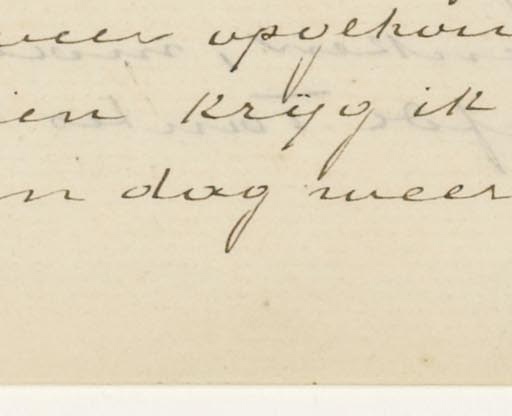 weer opgehou
ien krijg ik
n dag weer